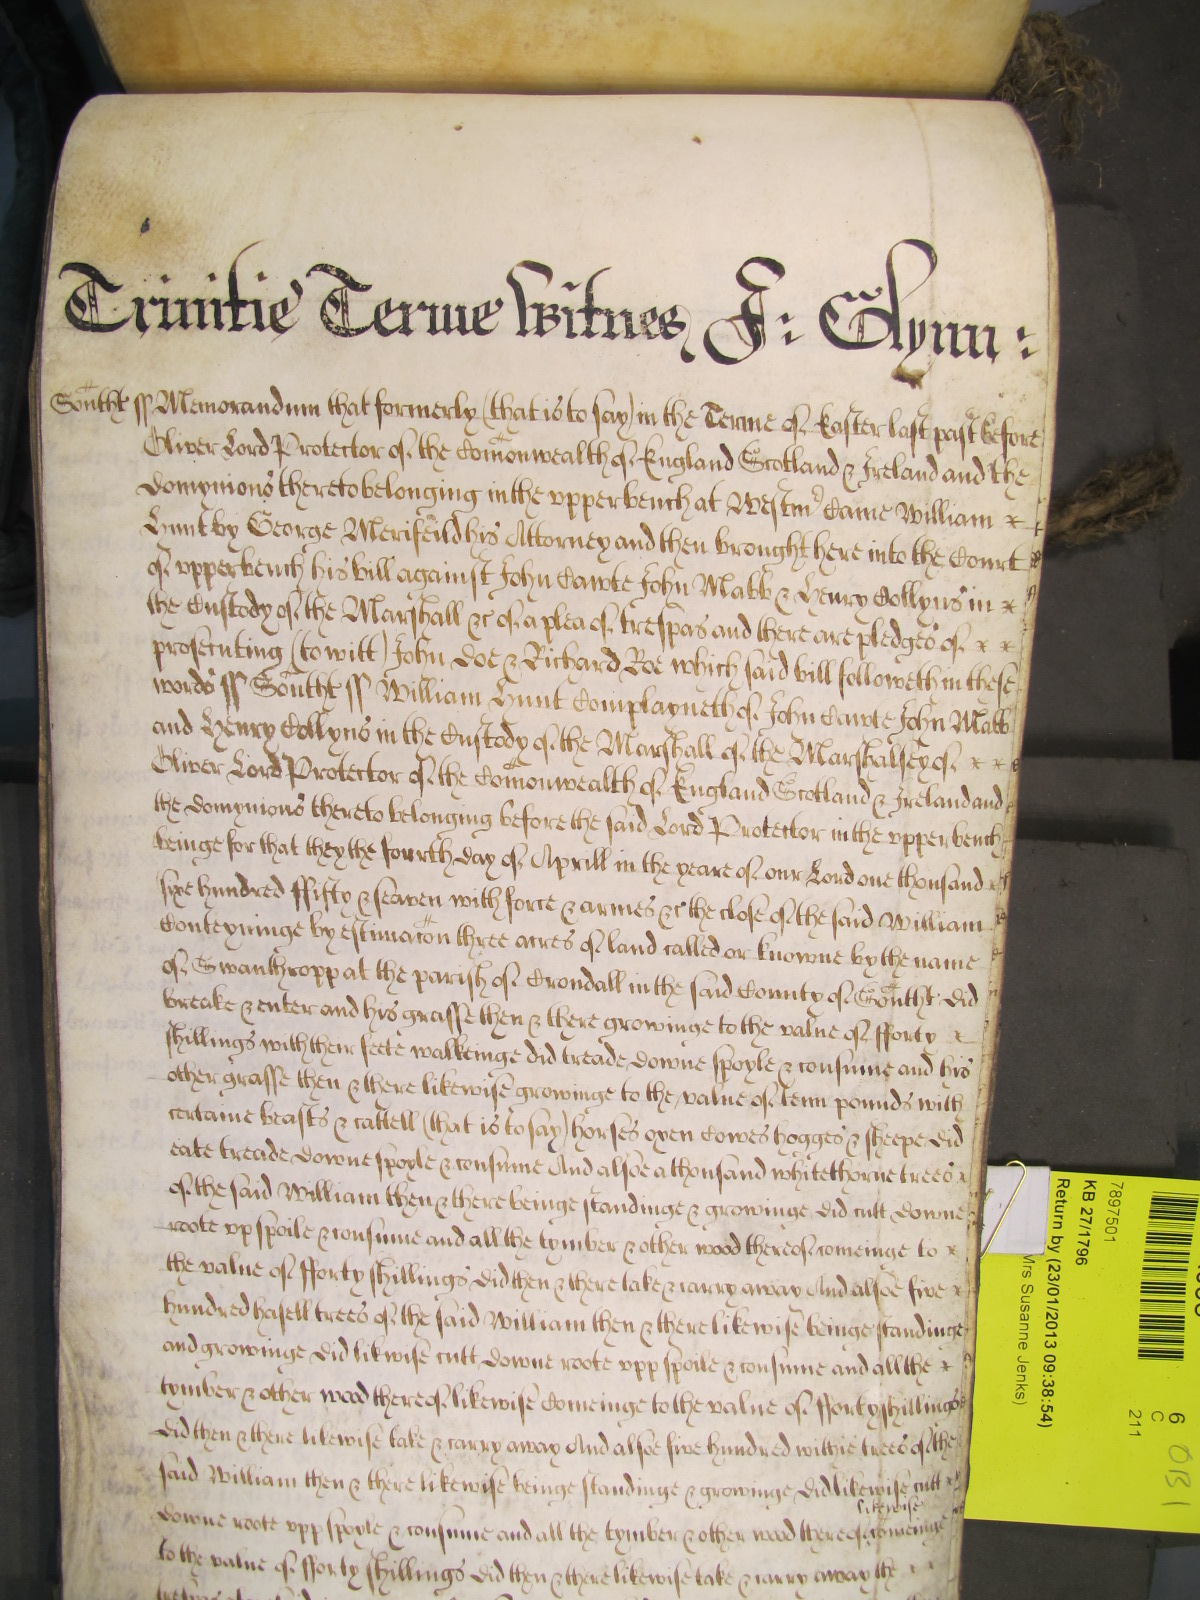 Trinitie Terme Witnes J: Glynn:
Southt ss Memorandum that formerly (that is to say) in the Terme of Easter last past before
Oliver Lord Protector of the Comonwealth of England Scotland & Ireland and the
domynions thereto belonging in the upper bench at Westm came William
Hunt by George Merifeild his Attorney and then brought here into the Court
of upper bench his bill against John Cawte John Mabb & Henry Collyns in
the Custody of the Marshall &c of a plea of trespas and there are pledges of
prosecuting (to witt) John Doe & Richard Roe which said bill followeth in these
words ss Southt ss William Hunt Complayneth of John Cawte John Mabb
and Henry Collyns in the Custody of the Marshall of the Marshalsey of
Oliver Lord Protector of the Comonwealth of England Scotland & Ireland and
the domynions thereto belonging before the said Lord Protector in the upper bench
beinge for that they the fourth day of Aprill in the yeare of our Lord one thousand
sixe hundred ffifty & seaven with force & armes &c the close of the said William
Conteyninge by estimacon three acres of land called or knowne by the name
of Swanthropp at the parish of Crondall in the said County of Southt did
breake & enter and his grasse then & there growinge to the value of fforty
shillings with their feete walkeinge did treade downe spoyle & consume and his
other grasse then & there likewise growinge to the value of tenn pounds with
certaine beasts & cattell (that is to say) horses oxen Cowes hogges & sheepe did
eate treade downe spoyle & consume And alsoe a thousand whitethorne trees
of the said William then & there beinge standinge & growinge did cutt downe
roote up spoile & consume and all the tymber & other wood thereof comeinge to
the value of fforty shillings did then & there take & carry away And alsoe five
hundred hasell trees of the said William then & there likewise beinge standinge
and growinge did likwise cutt downe roote upp spoile & consume and all the
tymber & other wood thereof likewise Comeinge to the value of fforty shillings
did then & there likewise take & carry away And alsoe five hundred withie trees of the
said William then & there likewise beinge standinge & growinge did likewise cutt
likewise
downe roote upp spoyle & consume and all the tymber & other wood thereof comeinge
to the value of fforty shillings did then & there likewise take & carry away the
7897501
KB 27/1796
Return by (23/01/2013 09:38:54)
Mrs Susanne Jenks)
6
C
211